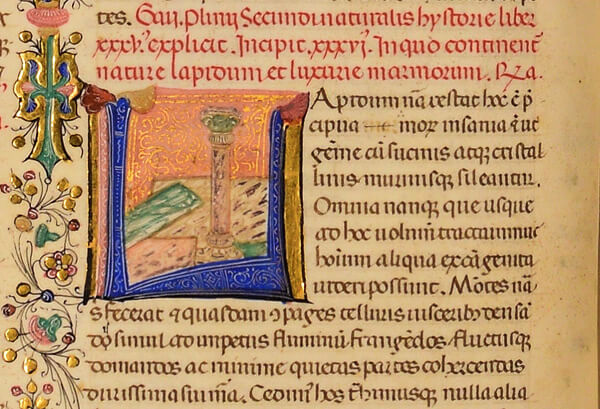 tes. Gaii. Plinii Secundi naturalis hystorie liber
xxxv. explicit. Incipit. xxxvi. In quo continent
nature lapidum et luxurie marmorum. Rza.
Lapidum nã restat hoc ẽ p̃
cipua morum insania ẽ ut
gẽme cũ sucinis atq; cristal
linis murrinisq; sileantur.
Omnia nanq; que usque
ad hoc uolumẽ tractauimus
hoĩum aliqua excã genita
uideri possunt. Mõtes nã
s fecerat ⁊ quasdam ɔpages telluris uisceribꝰ densã
dis simul ad impetus fluminũ frangẽdos fluctusq;
domandos ac minime quietas partes cohercendas
durissima sui mã. Cedimꝰ hos trahimusq; nulla alia